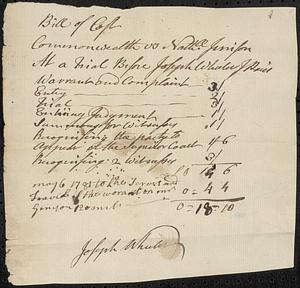 Bill of Cost
Commonwealth vs Nathll Jenison
At a Trial Before Joseph Wheeler J Pacis
Warrant and Complaint 3/
Entry 3/
Trial
Entering Judgement 1/
Summons for Witnesses 1/
Recognising the party to
Appear at the Superior Court 4 6
Recognising 2 Witnesses 3/
0 15 6
may 6 1781 to the
Travel
20 mil 0 = 4 4
0 = 18 = 10
Joseph Wheeler